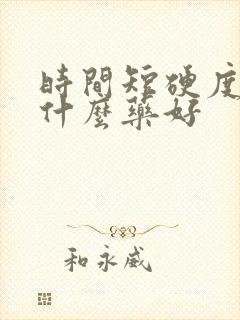 時間短硬度
什麼藥好
和永威